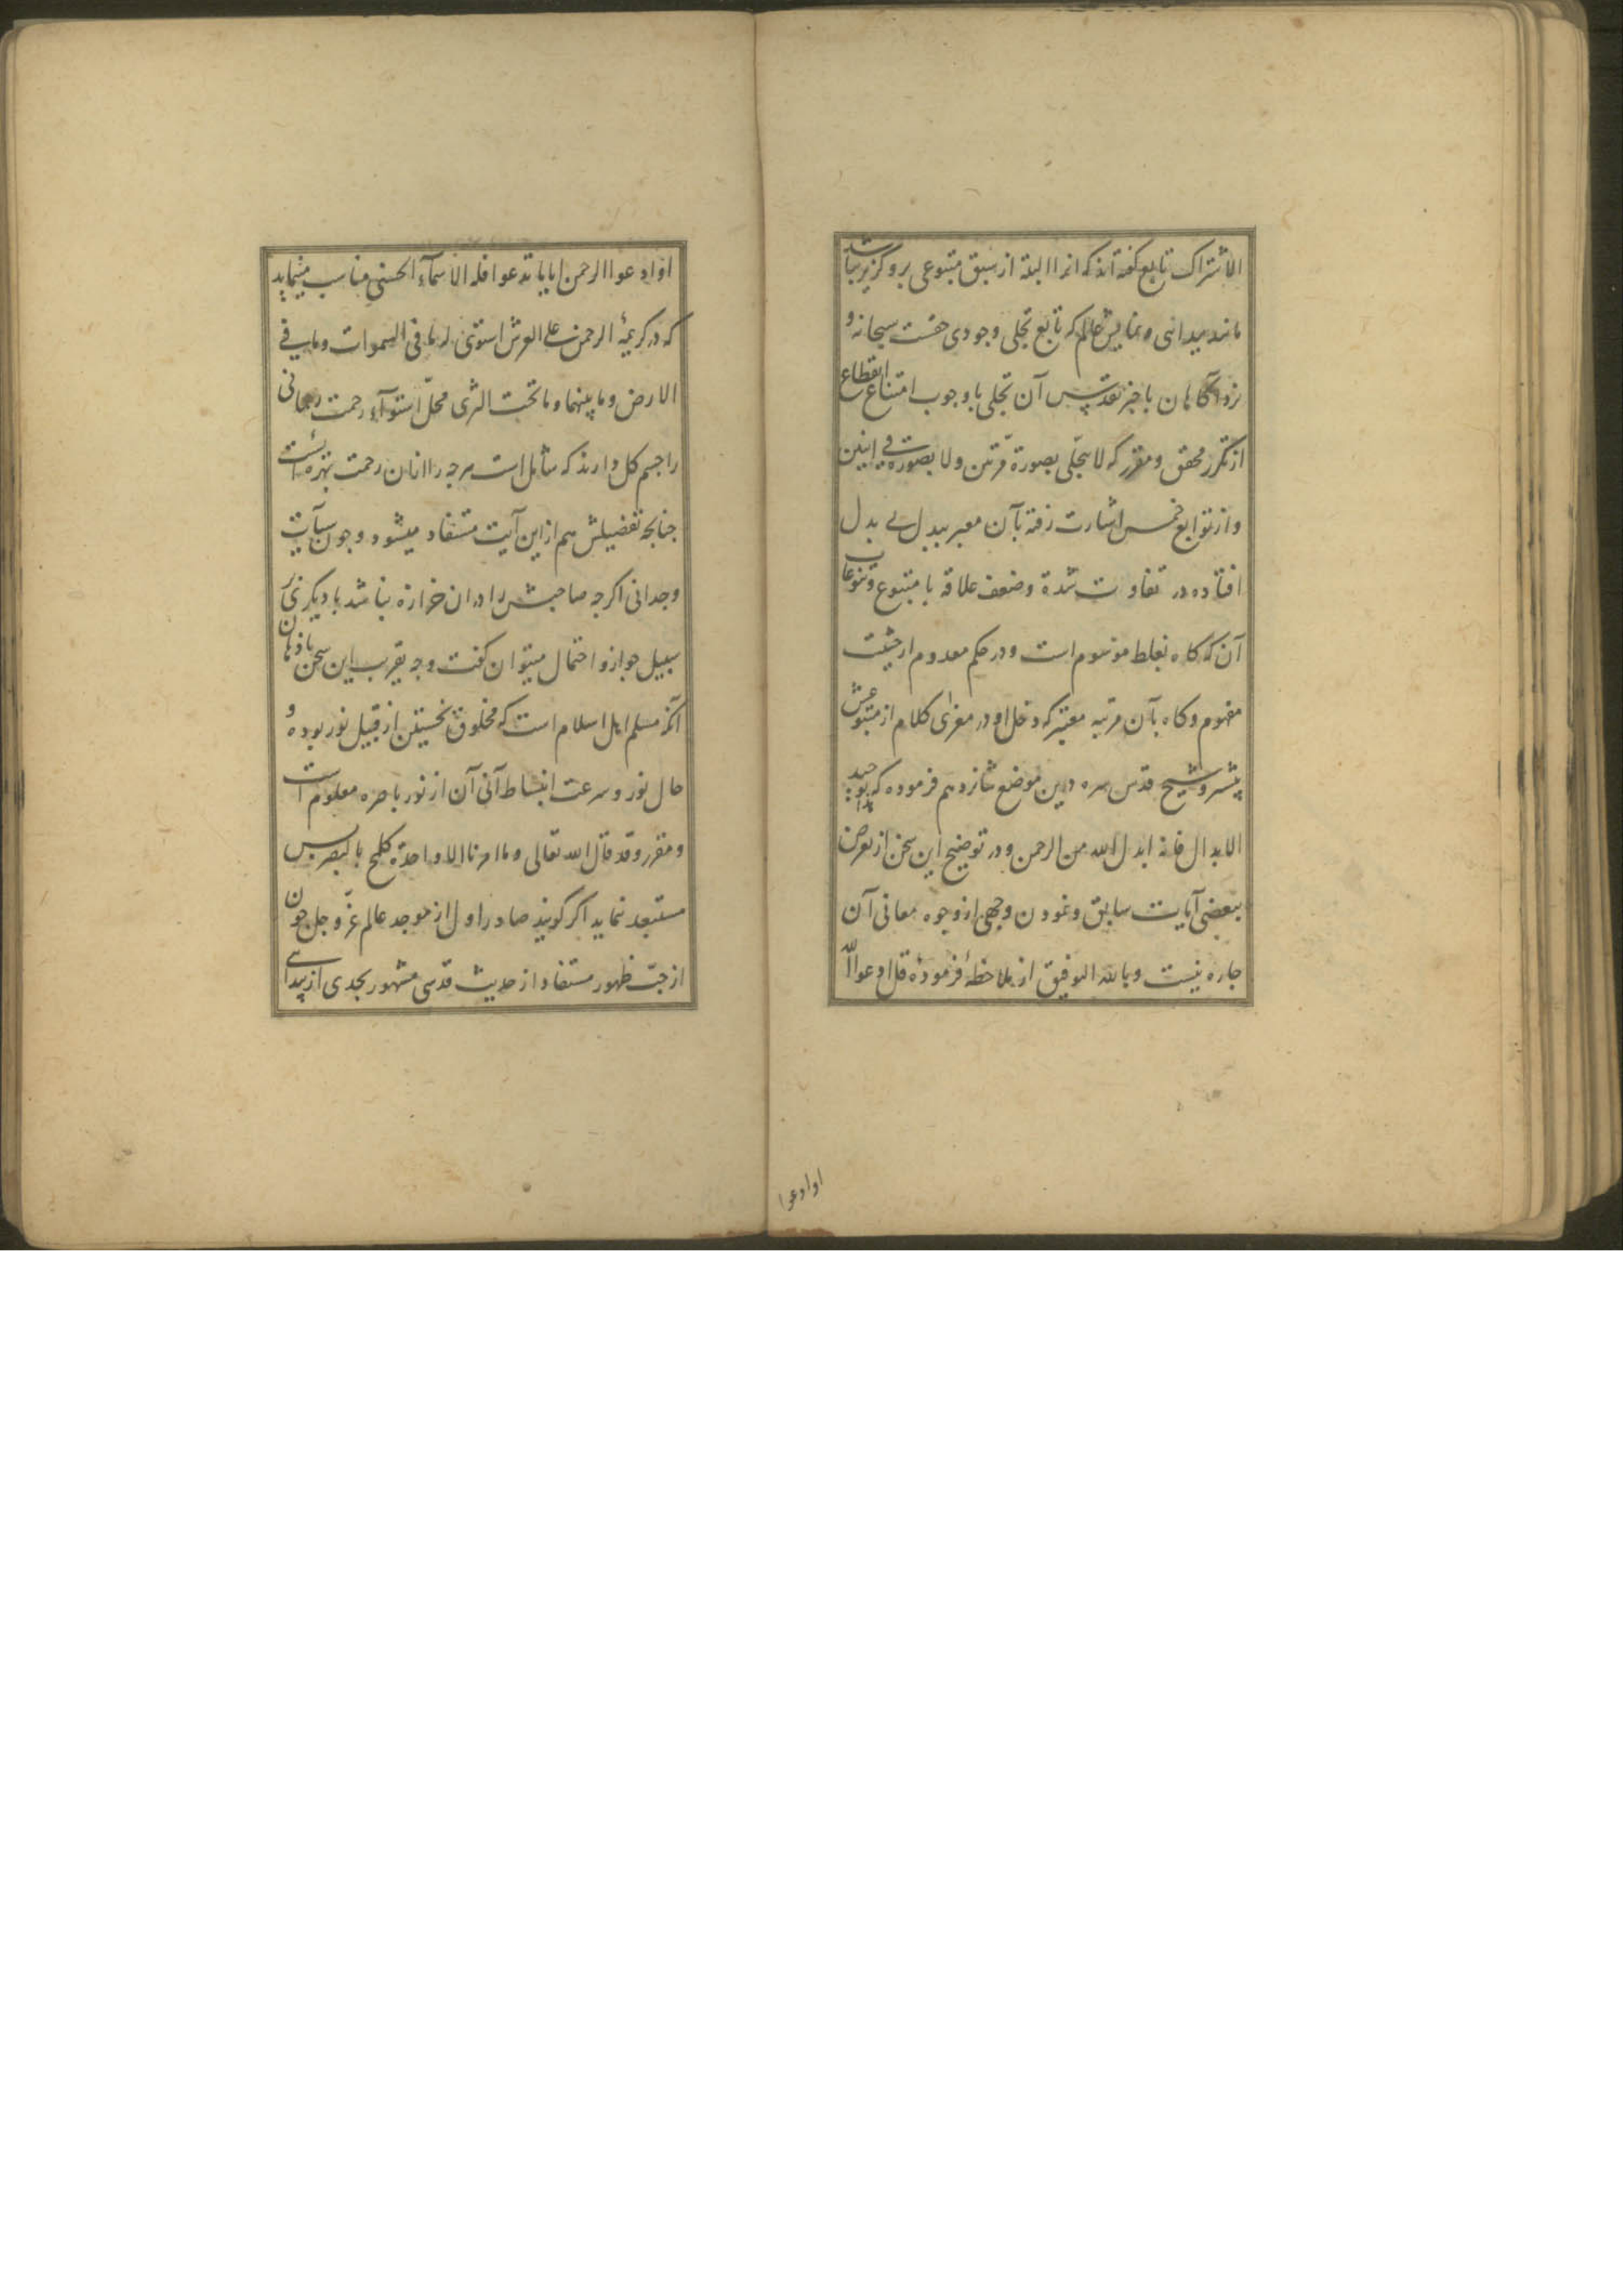 الاشتراک تابع گفته‌اند که انرا البته از سبق متبوعی بر و گزیر نباشد
مانند پیدائی و نمایش عالم که تابع تجلی وجودی حقست سبحانه و
نزد آگاهان با خبر تقدیس آن تجلی با وجوب امتناع انقطاع
از تکرر محقق و مقرر که لا یتجلی بصورة مرتین ولا بصورة فی اثنین
و از توابع خمس اشارت رفته بآن معبر ببدل بی بدل
افتاده در تفاوت شدة و ضعف علاقه با متبوع و تنوعات
آن که کاه بغلط موسوم است و در حکم معدوم از حیثیت
مفهوم و کاه بآن مرتبه معتبر که دخل او در مغزای کلام از متبوعش
بیشتر و شیخ قدس سره درین موضع شانزدهم فرموده که
الابدال فانه ابدل الله من الرحمن و در توضیح این سخن از تعرض
ببعضی آیات سابق و نمودن وجهی از وجوه معانی آن
جاره نیست و بالله التوفیق از ملاحظهٔ فرمودهٔ قل ادعوا الله
اوادعوا
او ادعوا الرحمن ایا ما تدعوا فله الاسمآء الحسنی مناسب مینماید
که در کریمهٔ الرحمن علی العرش استوی له ما فی السموات وما فی
الارض وما بینهما وما تحت الثری محل استوآء رحمت رحمانی
را جسم کل دارند که شامل است هرجه را از ان رحمت بهره ئست
جنانجه تفصیلش هم از این آیت مستفاد میشود و جون سیآیت
وجدانی اکرجه صاحبش را دران خرازه نباشد با دیگری بر
سبیل جواز و احتمال میتوان گفت وجه تقریب این سخن باذهان
آنکه مسلم اهل اسلام است که مخلوق نخستین از قبیل نور بوده و
حال نور و سرعت انبساط آنی آن از نور باصره معلوم است
و مقرر وقد قال الله تعالی وما امرنا الا واحدة کلمح بالبصر پس
مستبعد نماید اکر گویند صادر اول از موجد عالم عز و جل جون
از حب ظهور مستفاد از حدیث قدسی مشهور بجدی از پیدائی